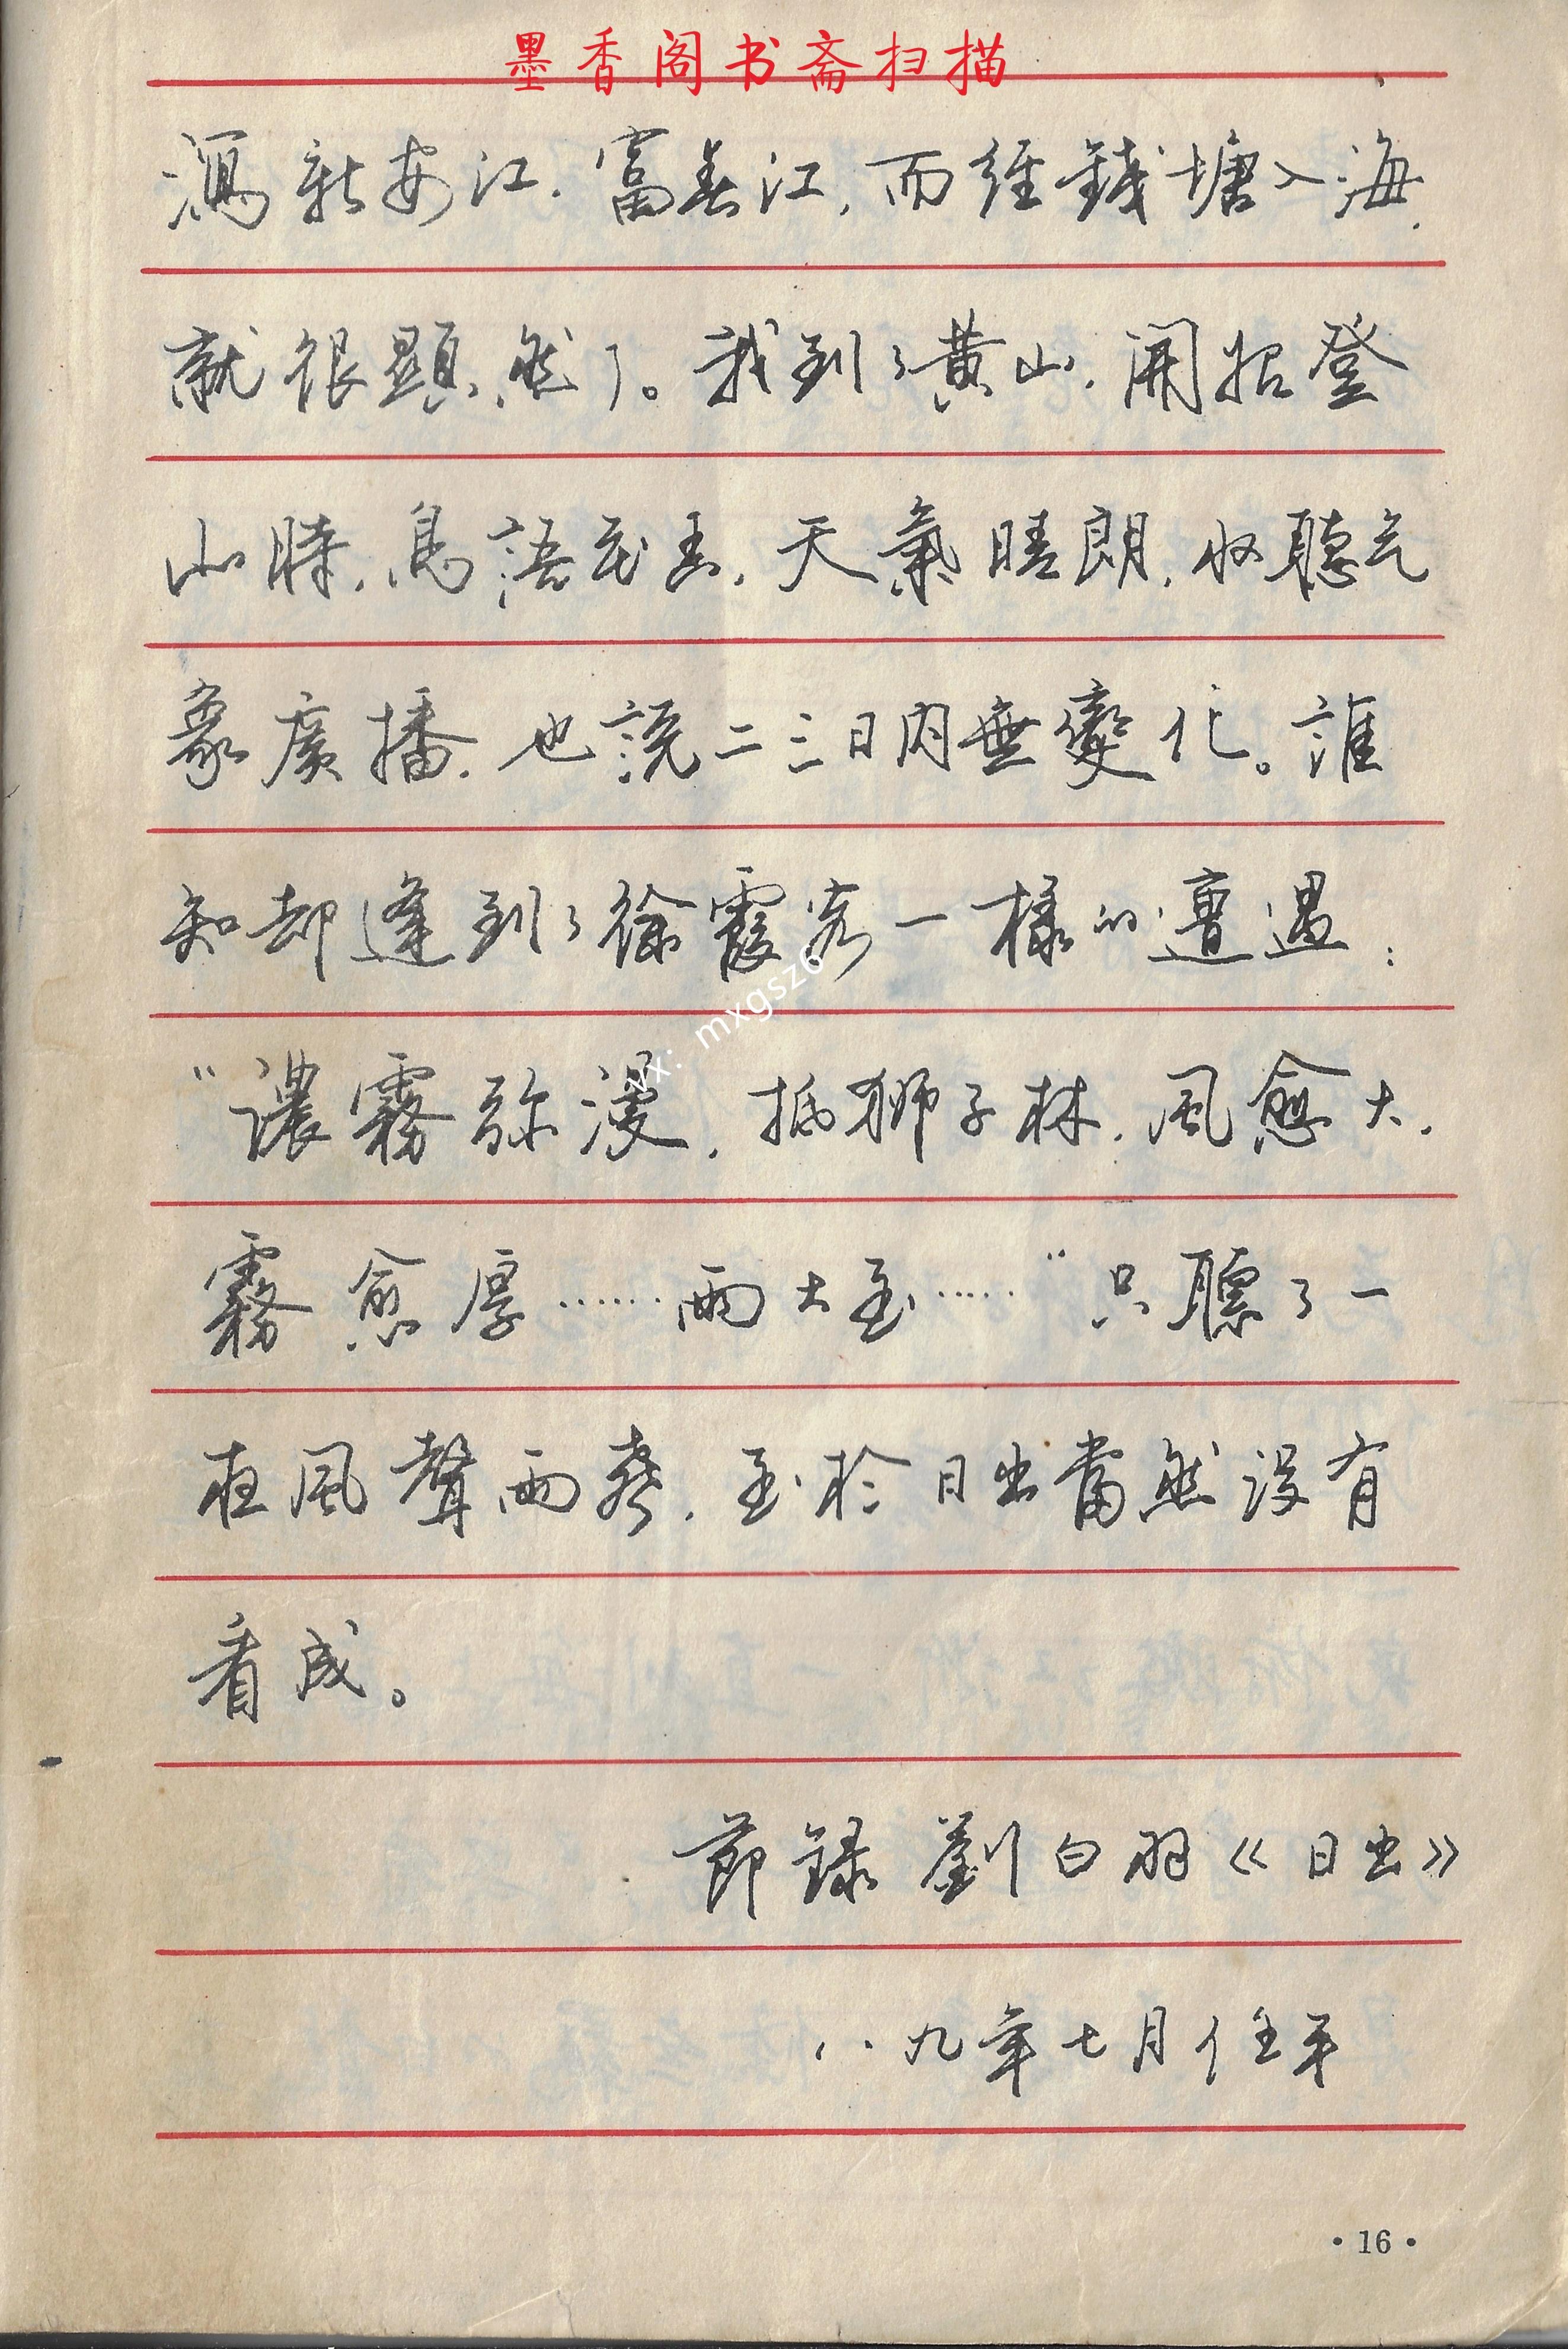 墨香阁书斋扫描
瀉新安江.富春江,而經錢塘入海.
就很顯然了。我到了黃山,開始登
山時,鳥語花香,天氣晴朗,收聽气
象廣播,也說二三日內無變化。誰
知却逢到了徐霞客一樣的遭遇:
vx: mxgsz6
“濃霧弥漫,抵狮子林,風愈大,
霧愈厚……雨大至……”只聽了一
夜風聲雨聲,至於日出當然沒有
看成。
節録劉白羽《日出》
八九年七月任平
·16·